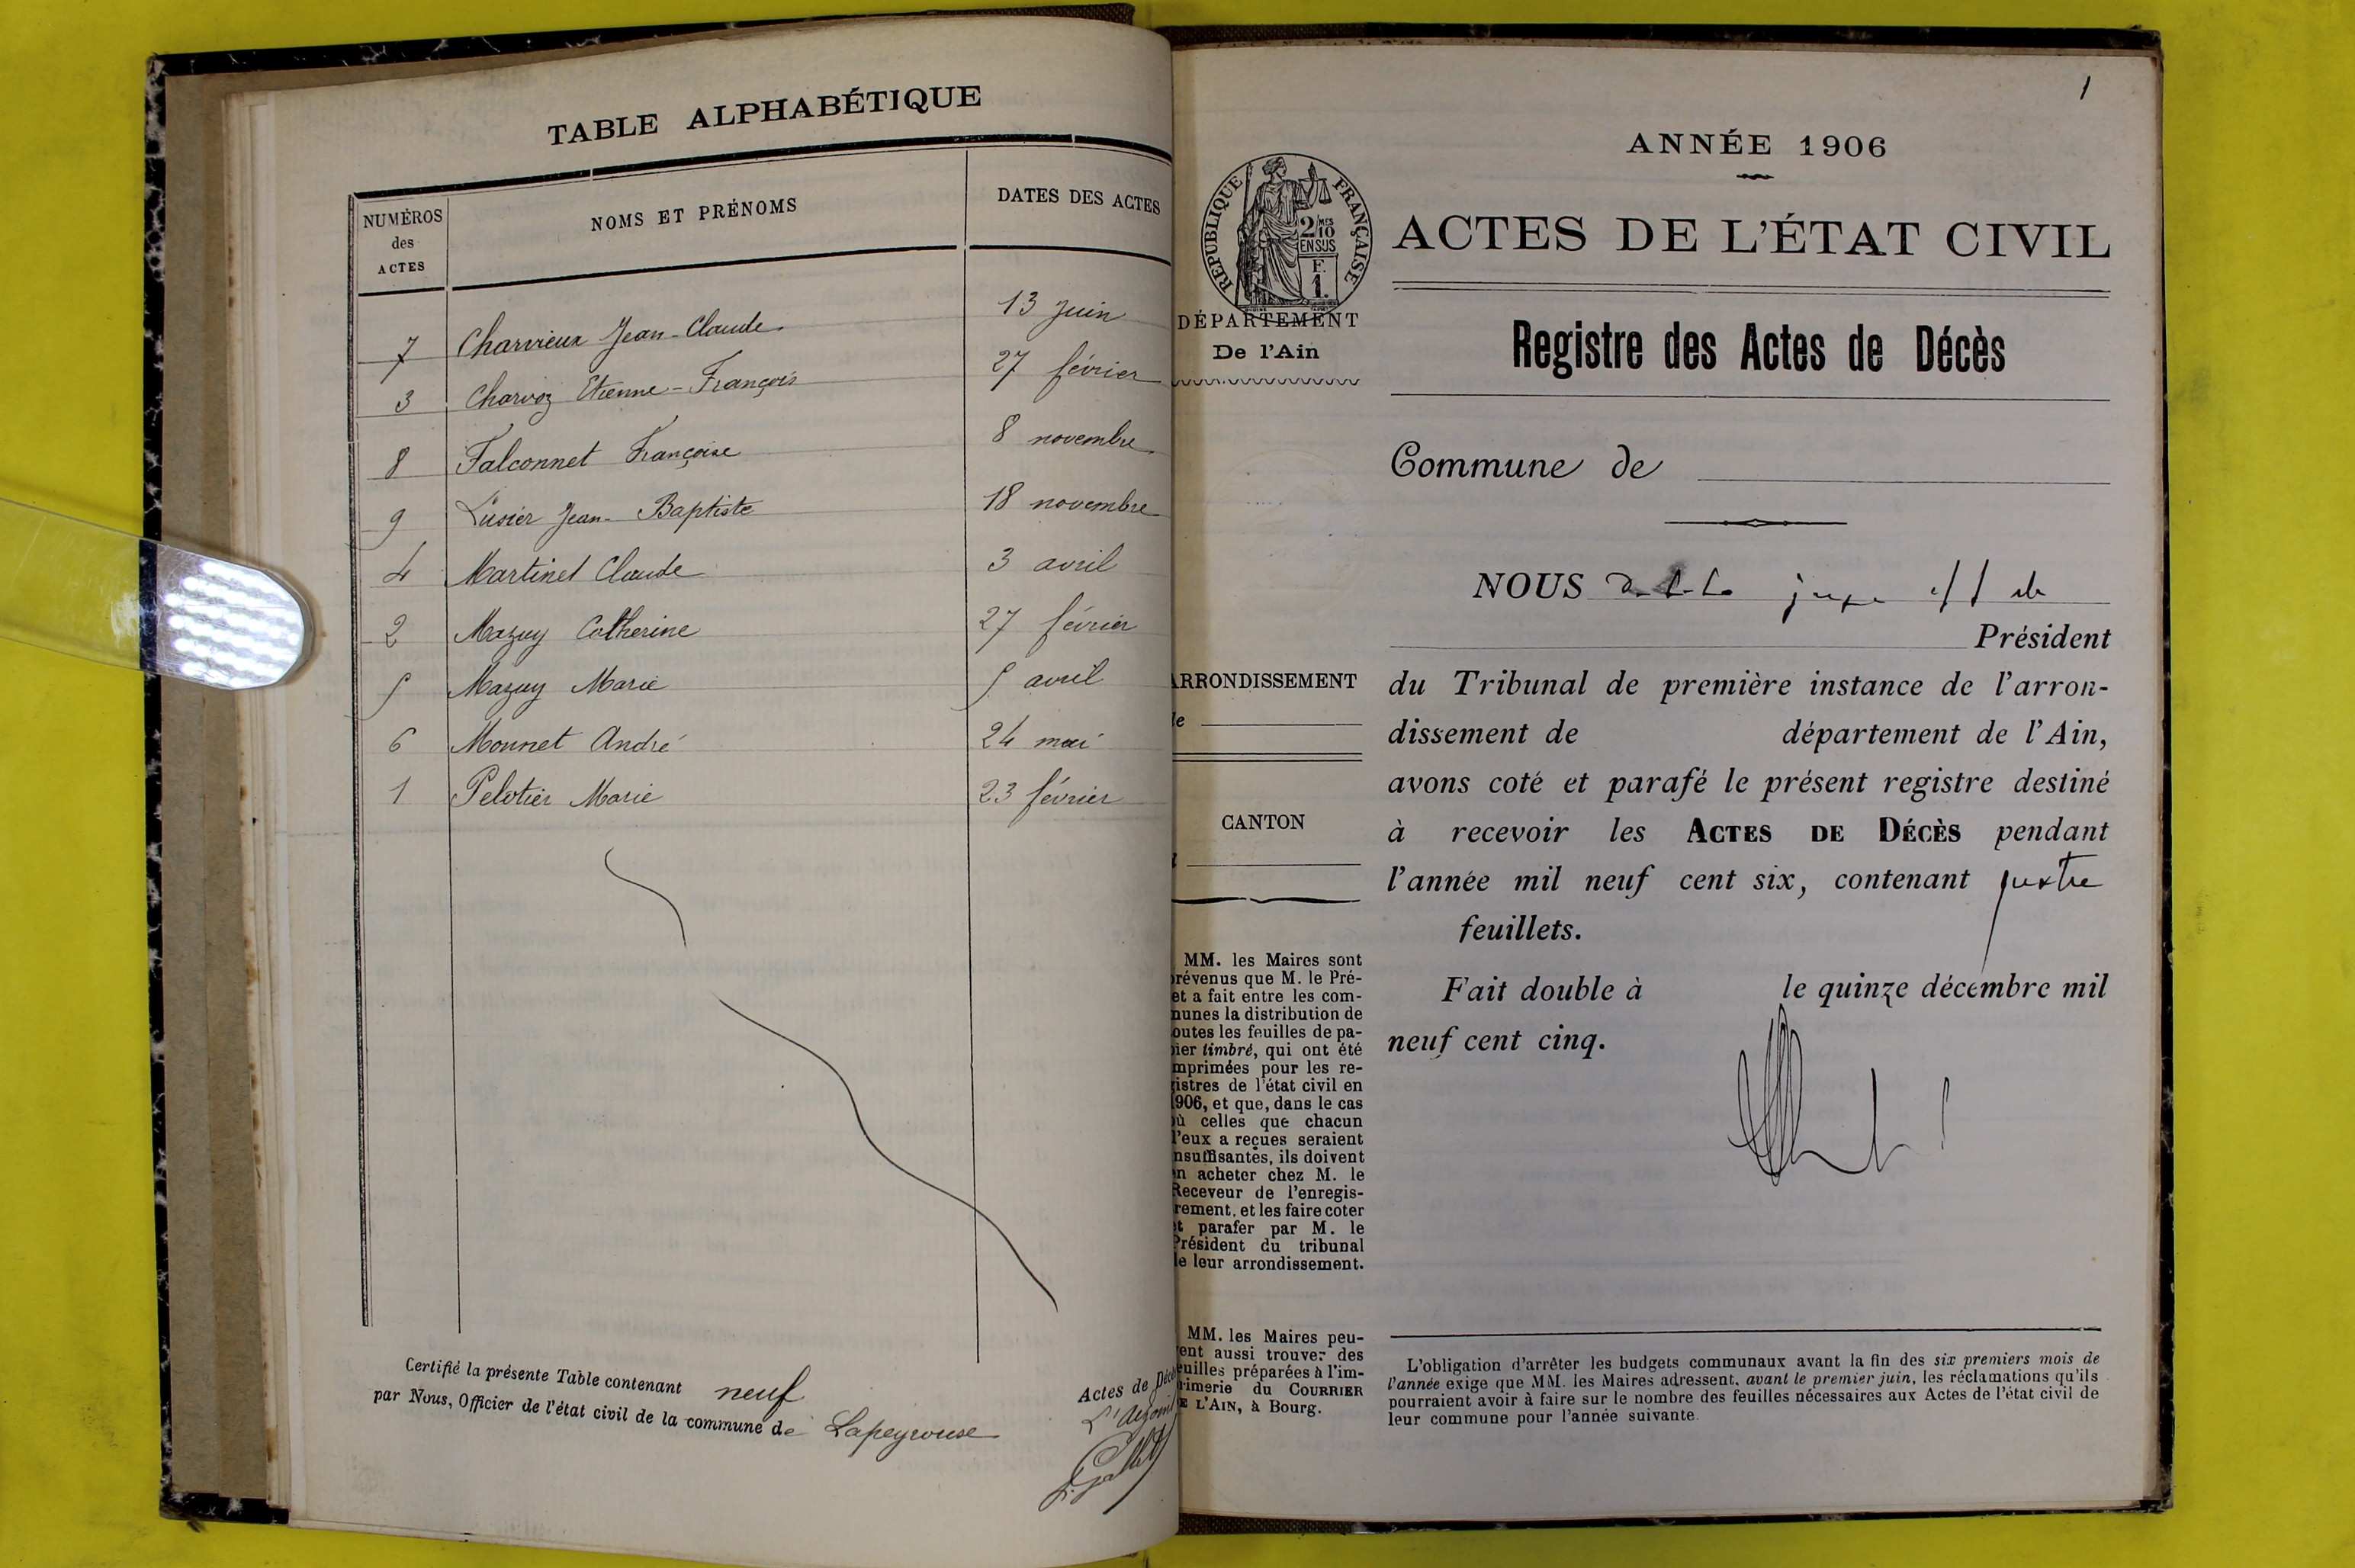 TABLE ALPHABÉTIQUE
NUMÉROS des ACTES NOMS ET PRÉNOMS DATES DES ACTES
7 Charvieux Jean-Claude 13 juin
3 Charvoz Etienne-François 27 février
8 Falconnet Françoise 8 novembre
9 Lusier Jean-Baptiste 18 novembre
4 Martinet Claude 3 avril
2 Mazuy Catherine 27 février
5 Mazuy Marie 5 avril
6 Monnet André 24 mai
1 Pelotier Marie 23 février
Certifié la présente Table contenant neuf Actes de Décè
par Nous, Officier de l'état civil de la commune de Lapeyrouse
L'adjoint
1
ANNÉE 1906
RÉPUBLIQUE FRANÇAISE
2/10 MES
EN SUS
F.
1.
ACTES DE L'ÉTAT CIVIL
DÉPARTEMENT
De l'Ain
Registre des Actes de Décès
Commune de
NOUS
Président
ARRONDISSEMENT
de
du Tribunal de première instance de l'arron-
dissement de département de l'Ain,
avons coté et parafé le présent registre destiné
CANTON
à recevoir les ACTES DE DÉCÈS pendant
l'année mil neuf cent six, contenant quatre
feuillets.
Fait double à le quinze décembre mil
neuf cent cinq.
MM. les Maires sont
prévenus que M. le Pré-
et a fait entre les com-
munes la distribution de
outes les feuilles de pa-
pier timbré, qui ont été
mprimées pour les re-
gistres de l'état civil en
1906, et que, dans le cas
où celles que chacun
d'eux a reçues seraient
insuffisantes, ils doivent
en acheter chez M. le
Receveur de l'enregis-
rement, et les faire coter
et parafer par M. le
Président du tribunal
de leur arrondissement.
MM. les Maires peu-
vent aussi trouver des
euilles préparées à l'im-
rimerie du COURRIER
DE L'AIN, à Bourg.
L'obligation d'arrêter les budgets communaux avant la fin des six premiers mois de
l'année exige que MM. les Maires adressent, avant le premier juin, les réclamations qu'ils
pourraient avoir à faire sur le nombre des feuilles nécessaires aux Actes de l'état civil de
leur commune pour l'année suivante.